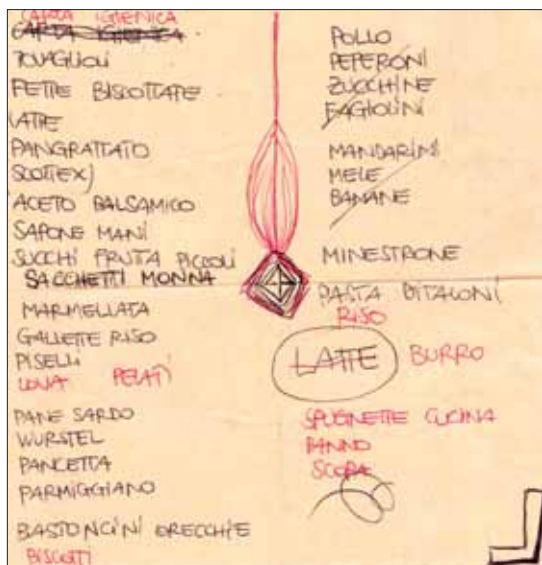 CARTA IGIENICA
CARTA IGIENICA
TOVAGLIOLI
FETTE BISCOTTATE
LATTE
PANGRATTATO
SCOTTEX
ACETO BALSAMICO
SAPONE MANI
SUCCHI FRUTA PICCOLI
SACCHETTI MONNA
MARMELLATA
GALLETTE RISO
PISELLI
UOVA PELATI
PANE SARDO
WURSTEL
PANCETTA
PARMIGGIANO
BASTONCINI ORECCHIE
BISCOTTI
POLLO
PEPERONI
ZUCCHINE
FAGIOLINI
MANDARINI
MELE
BANANE
MINESTRONE
PASTA DITALONI
RISO
LATTE BURRO
SPUGNETTE CUCINA
PANNO
SCOPA